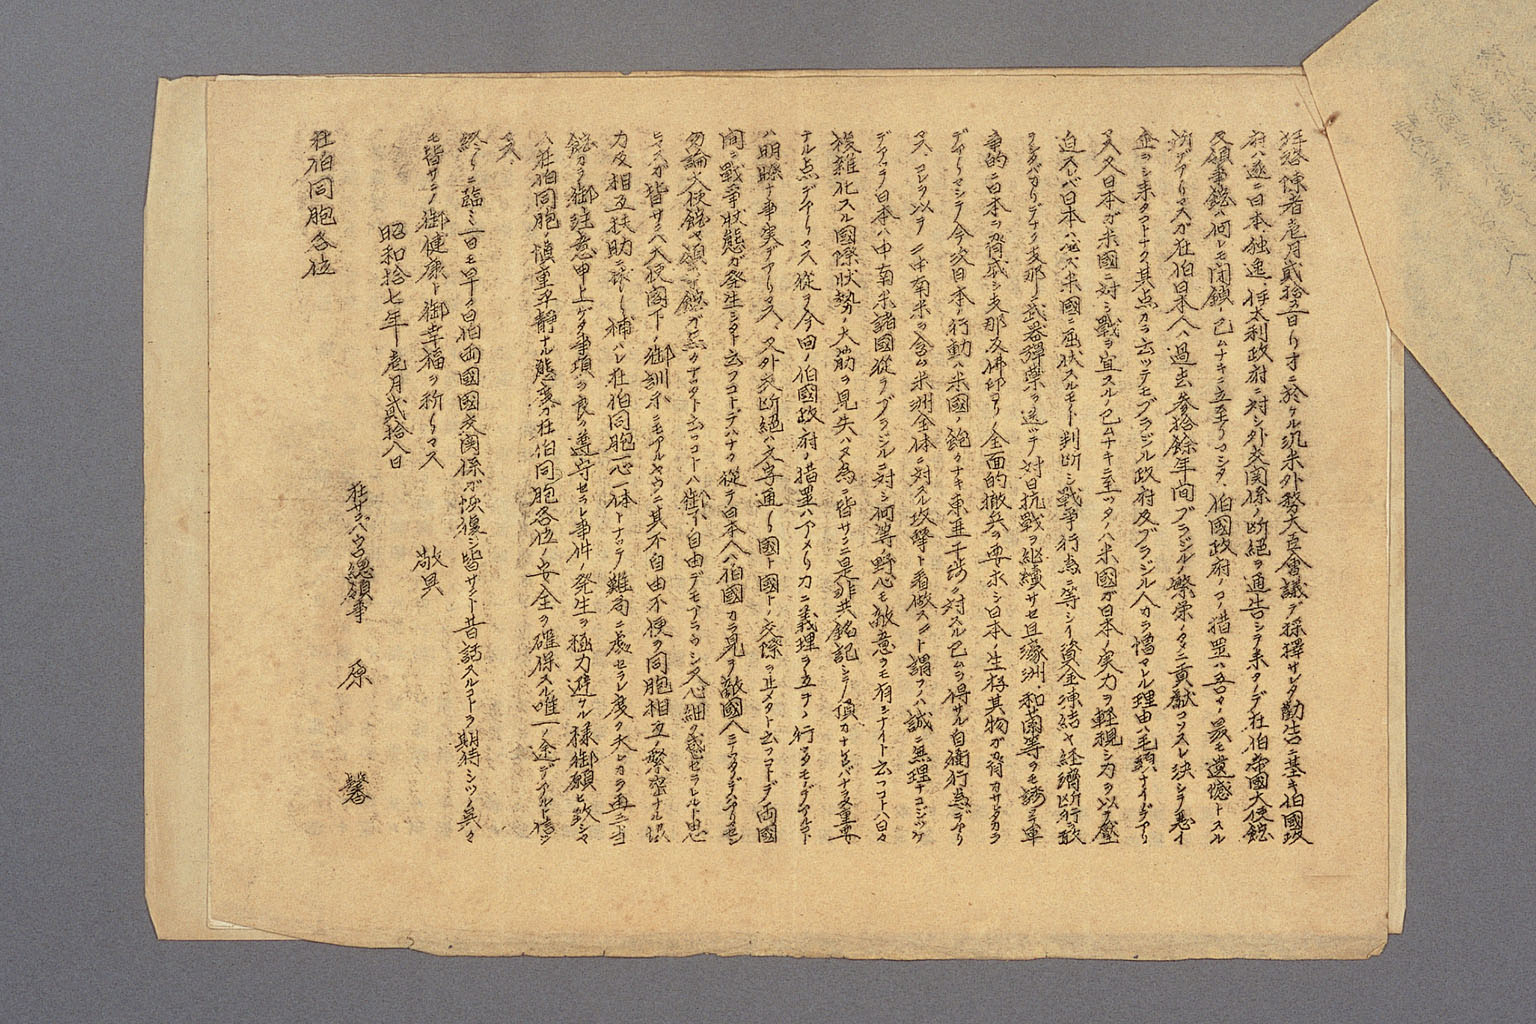 拝啓陳者壱月貮拾五日リオニ於ケル汎米外務大臣會議デ採擇サレタ勧告ニ基キ伯國政
府ハ遂ニ日本独逸、伊太利政府ニ対シ外交関係ノ断絶ヲ通告シテ来タノデ在伯帝國大使館
及領事館ハ何レモ閉鎖ノ已ムナキニ立至リマシタ、伯國政府ノコノ措置ハ吾々ノ最モ遺憾トスル
所デアリマスガ在伯日本人ハ過去参拾餘年間ブラジルノ繁栄ノタメニ貢献コソスレ決シテ悪イ
企ヲシ来タコトナク其点カラ云ッテモブラジル政府及ブラジル人カラ憎マレル理由ハ毛頭ナイノデアリ
マス又日本ガ米國ニ対シ戦ヲ宣スルノ已ムナキニ至ッタノハ米國ガ日本ノ実力ヲ軽視シ力ヲ以テ壓
迫スレバ日本ハ必ズ米國ニ屈伏スルモノト判断シ戦争行為ニ等シイ資金凍結ヤ経済断行ヲ敢
テシタバカリデナク支那ニ武器弾薬ヲ送ッテ対日抗戦ヲ継續サセ且濠洲、和蘭等ヲモ誘ヲテ軍
事的ニ日本ニ脅威シ支那及佛印ヨリノ全面的撤兵ヲ要求シ日本ノ生存其物ガ脅カサレタカラ
デアリマシテ今次日本ノ行動ハ米國ノ飽クナキ東亜干渉ニ対スル已ムヲ得ザル自衛行為デアリ
マス、コレヲ以テ「中南米ヲ含ム米洲全体ニ対スル攻撃ト看做ス」ト謂フノハ誠ニ無理ナコジツケ
デアッテ日本ハ中南米諸國從テブラジルニ対シ何等ノ野心モ敵意ヲモ有シナイト云フコトハ白々
複雑化スル國際状勢ノ大筋ヲ見失ハヌ為ニ皆サンニ是非共銘記シテ頂カナケレバナラヌ重要
ナル点デアリマス從ヲテ今回ノ伯國政府ノ措置ハアメリカニ義理ヲ立テヽ行ッタモノデアルコト
ハ明瞭ナ事実デアリマス、又外交断絶ハ文字通リ國ト國トノ交際ヲ止メタト云フコトデ両國
間ニ戦争状態ガ発生シタト云フコトデハナク從テ日本人ハ伯國カラ見テ敵國人ニナッタノデハアリマセン
勿論大使館ヤ領事館ガ無クナッタト云フコトハ御不自由デモアラウシ又心細ク感セラレルト思
ヒマスガ皆サンハ大使閣下ノ御訓示ニモアルヤウニ其不自由不便ヲ同胞相互ノ緊密ナル協
力及相互扶助ニ依ッテ補ハレ在伯同胞一心一体トナッテ難局ニ處セラレ度ク夫レカラ再三当
館カラ御注意申上ゲタ事項ヲ良ク遵守セラレ事件ノ発生ヲ極力避ケル様御願ヒ致シマ
ス在伯同胞ノ慎重平静ナル態度ガ在伯同胞各位ノ安全ヲ確保スル唯一ノ途デアルト信ジ
マス、
終リニ臨ミ一日モ早ク日伯両國國交関係ガ恢復シ皆サント昔話スルコトヲ期待シツヽ呉々
モ皆サンノ御健康ト御幸福ヲ祈リマス
敬具
昭和拾七年壱月貮拾八日
在サンパウロ総領事 原 馨
在伯同胞各位